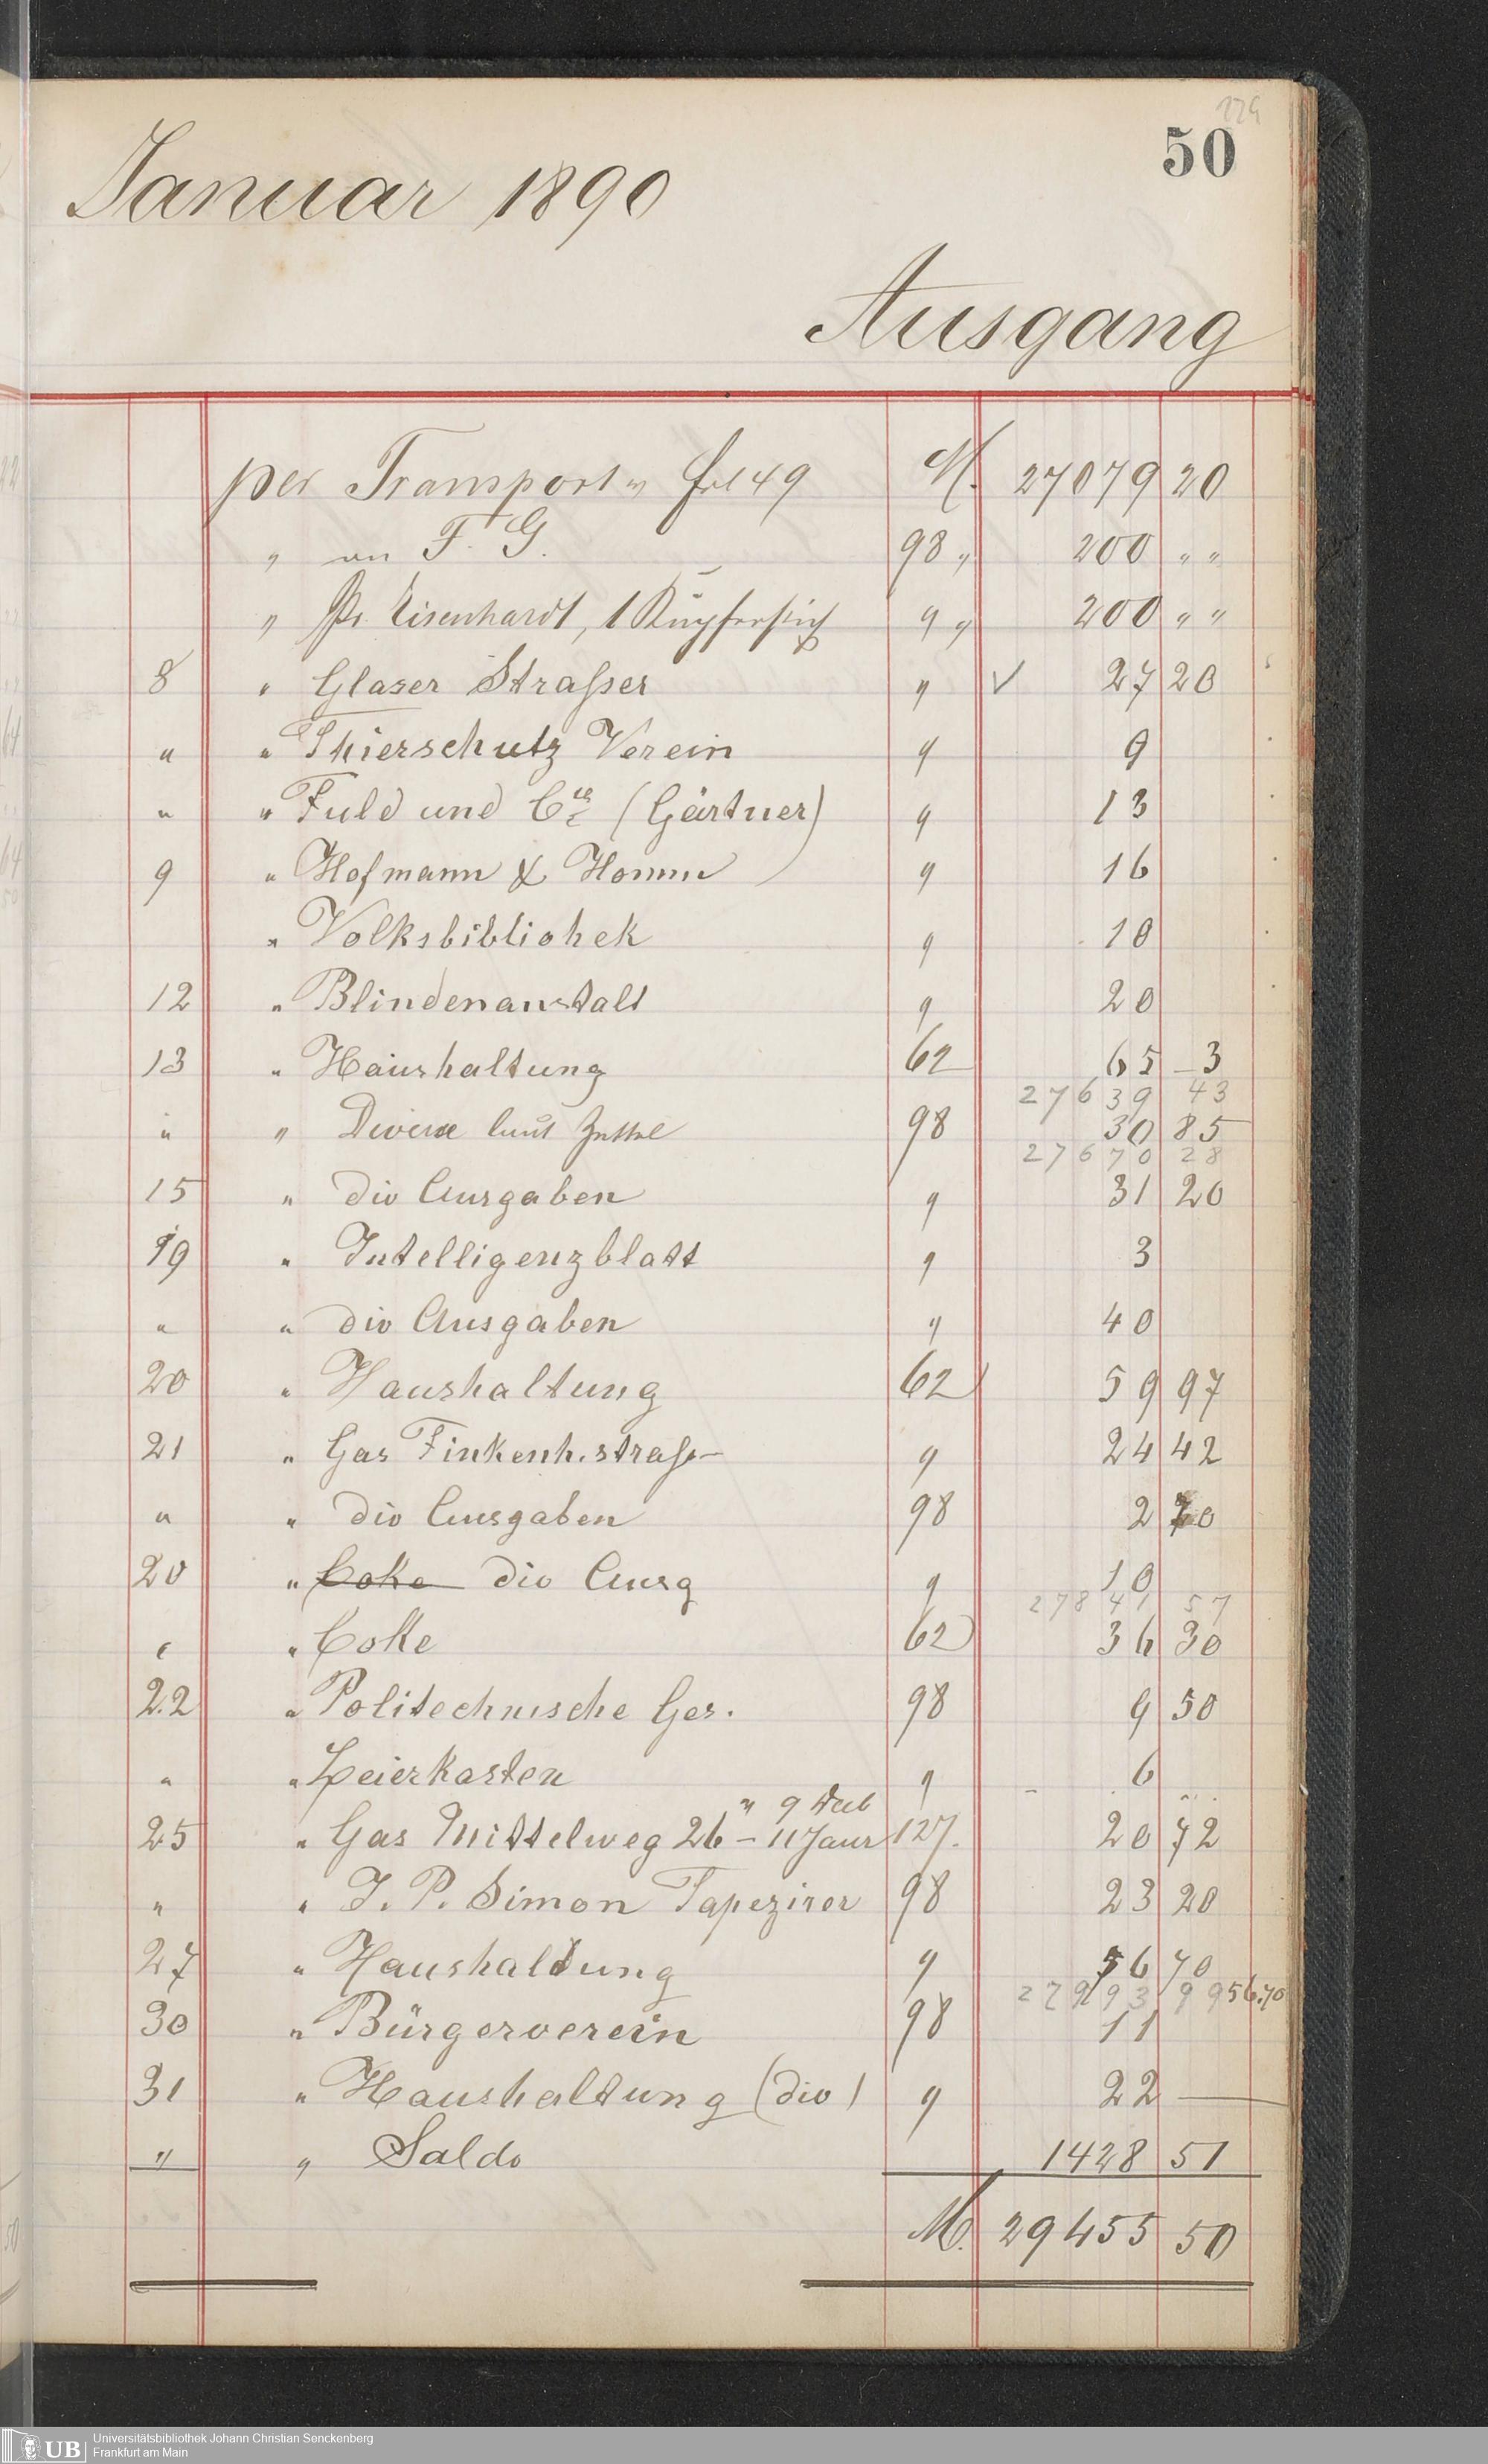 50
Januar 1890
Ausgang
per Transport v. fol 49 M. 27079 20
" an F. G. 98 " 200 " "
" Pr. Eisenhardt, 1 Kupferstich " " 200 " "
8 " Glaser Straßer " ✓ 27 20
" " Thierschutz Verein " 9
" " Fuld und Cie (Gärtner) " 13
9 " Hofmann & " 16
" Volksbibliohek " 10
12 " Blindenanstalt " 20
13 " Haushaltung 62 65 3
27639 43
" " Diverse laut Zettel 98 30 85
27670 28
15 " div Ausgaben " 31 20
19 " Intelligenzblatt " 3
" " div Ausgaben " 40
20 " Haushaltung 62 59 97
21 " Gas Finkenh.straße " 24 42
" " div Ausgaben 98 2 70
20 " Coke div Ausg " 10
27841 57
" " Coke 62 36 30
22 " Politechnische Ges. 98 9 50
" " Leierkasten " 6
v 9 Deib
25 " Gas Mittelweg 26 – 11 Janr 127. 20 72
" " J. P. Simon Tapezirer 98 23 20
27 " Haushaltung " 56 70
27993 99 56.70
30 " Bürgerverein 98 11
31 " Haushaltung (div) " 22 —
" " Saldo 1428 51
M. 29455 50
UB
Universitätsbibliothek Johann Christian Senckenberg
Frankfurt am Main